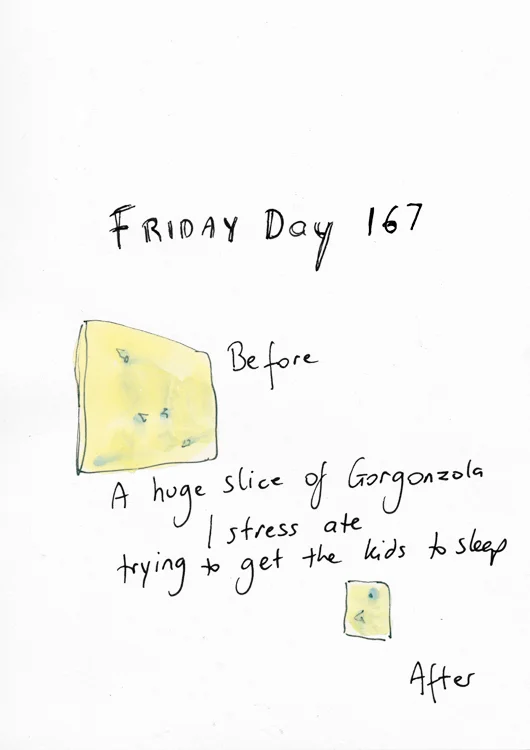 FRIDAY Day 167
Before
A huge slice of Gorgonzola
I stress ate
trying to get the kids to sleep
After